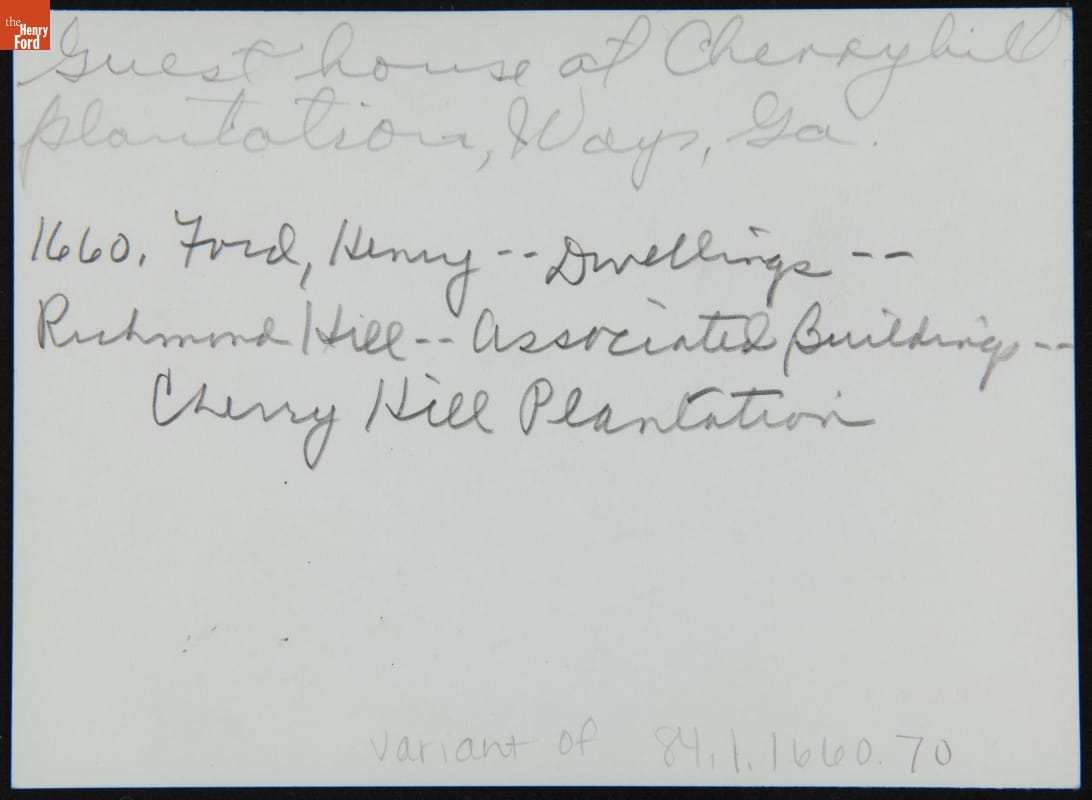 the
Henry
Ford
Guest house at Cherryhill
plantation, Ways, Ga.
1660. Ford, Henry -- Dwellings --
Richmond Hill -- Associated Buildings --
Cherry Hill Plantation
variant of 84.1.1660.70